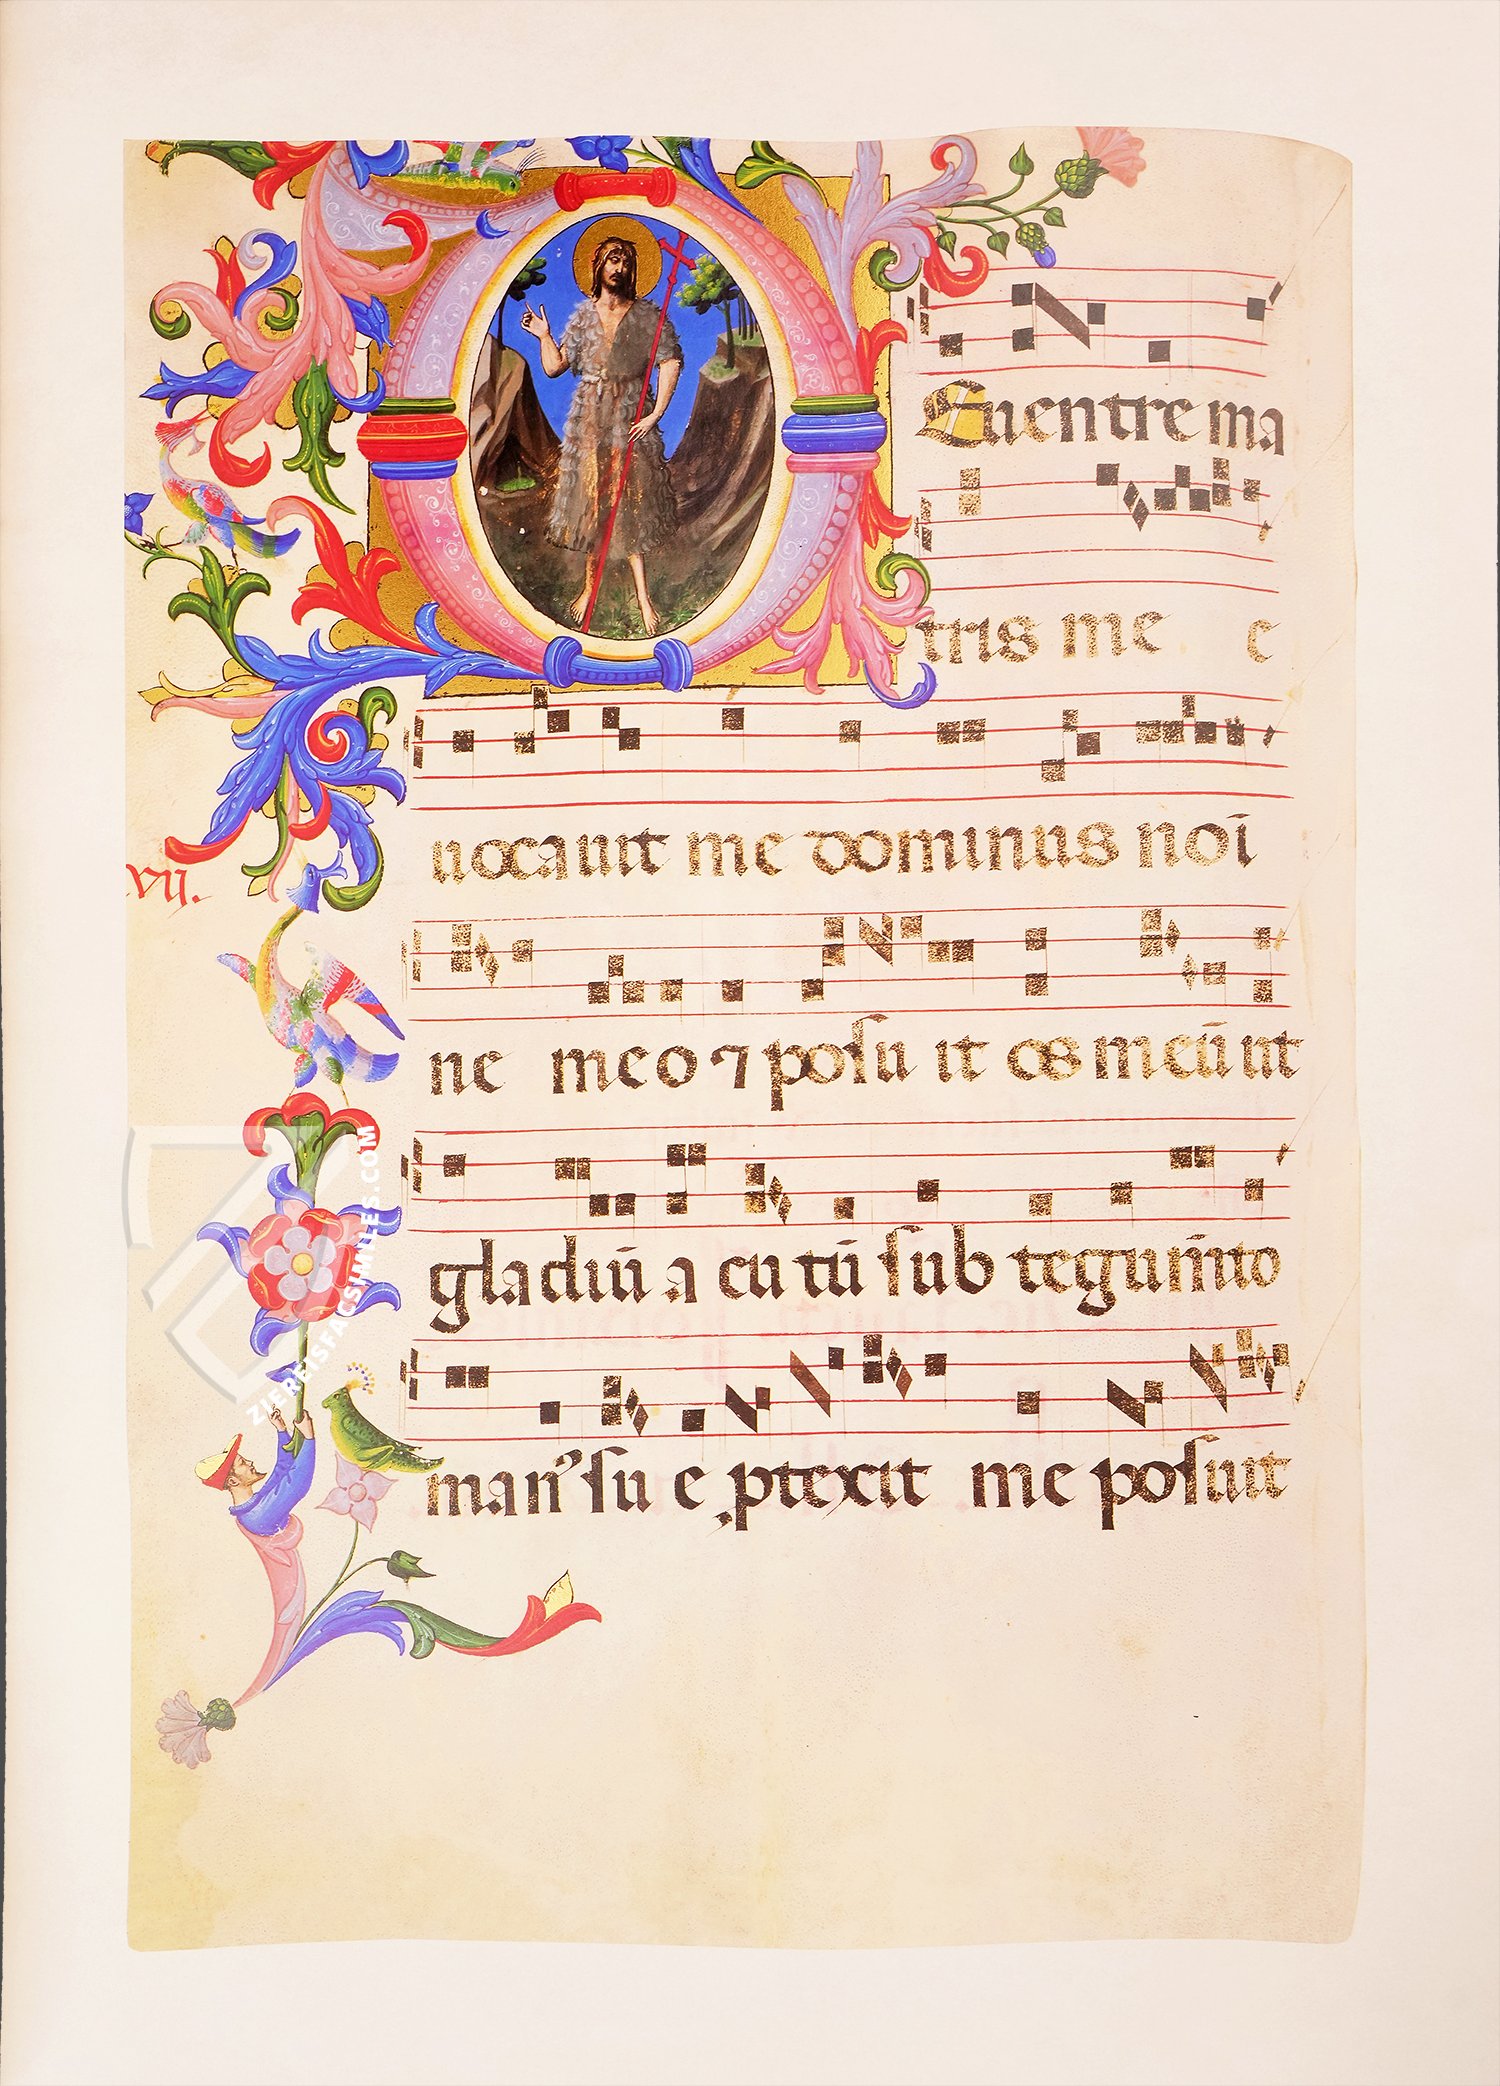 De uentre ma
tris me e
uocauit me dominus noī
ne meo ⁊ posu it os meū ut
gladiū a cu tū sub tegum̄to
VII.
man⁹ su e ꝓtexit me posuit
ZIEREISFACSIMILES.COM